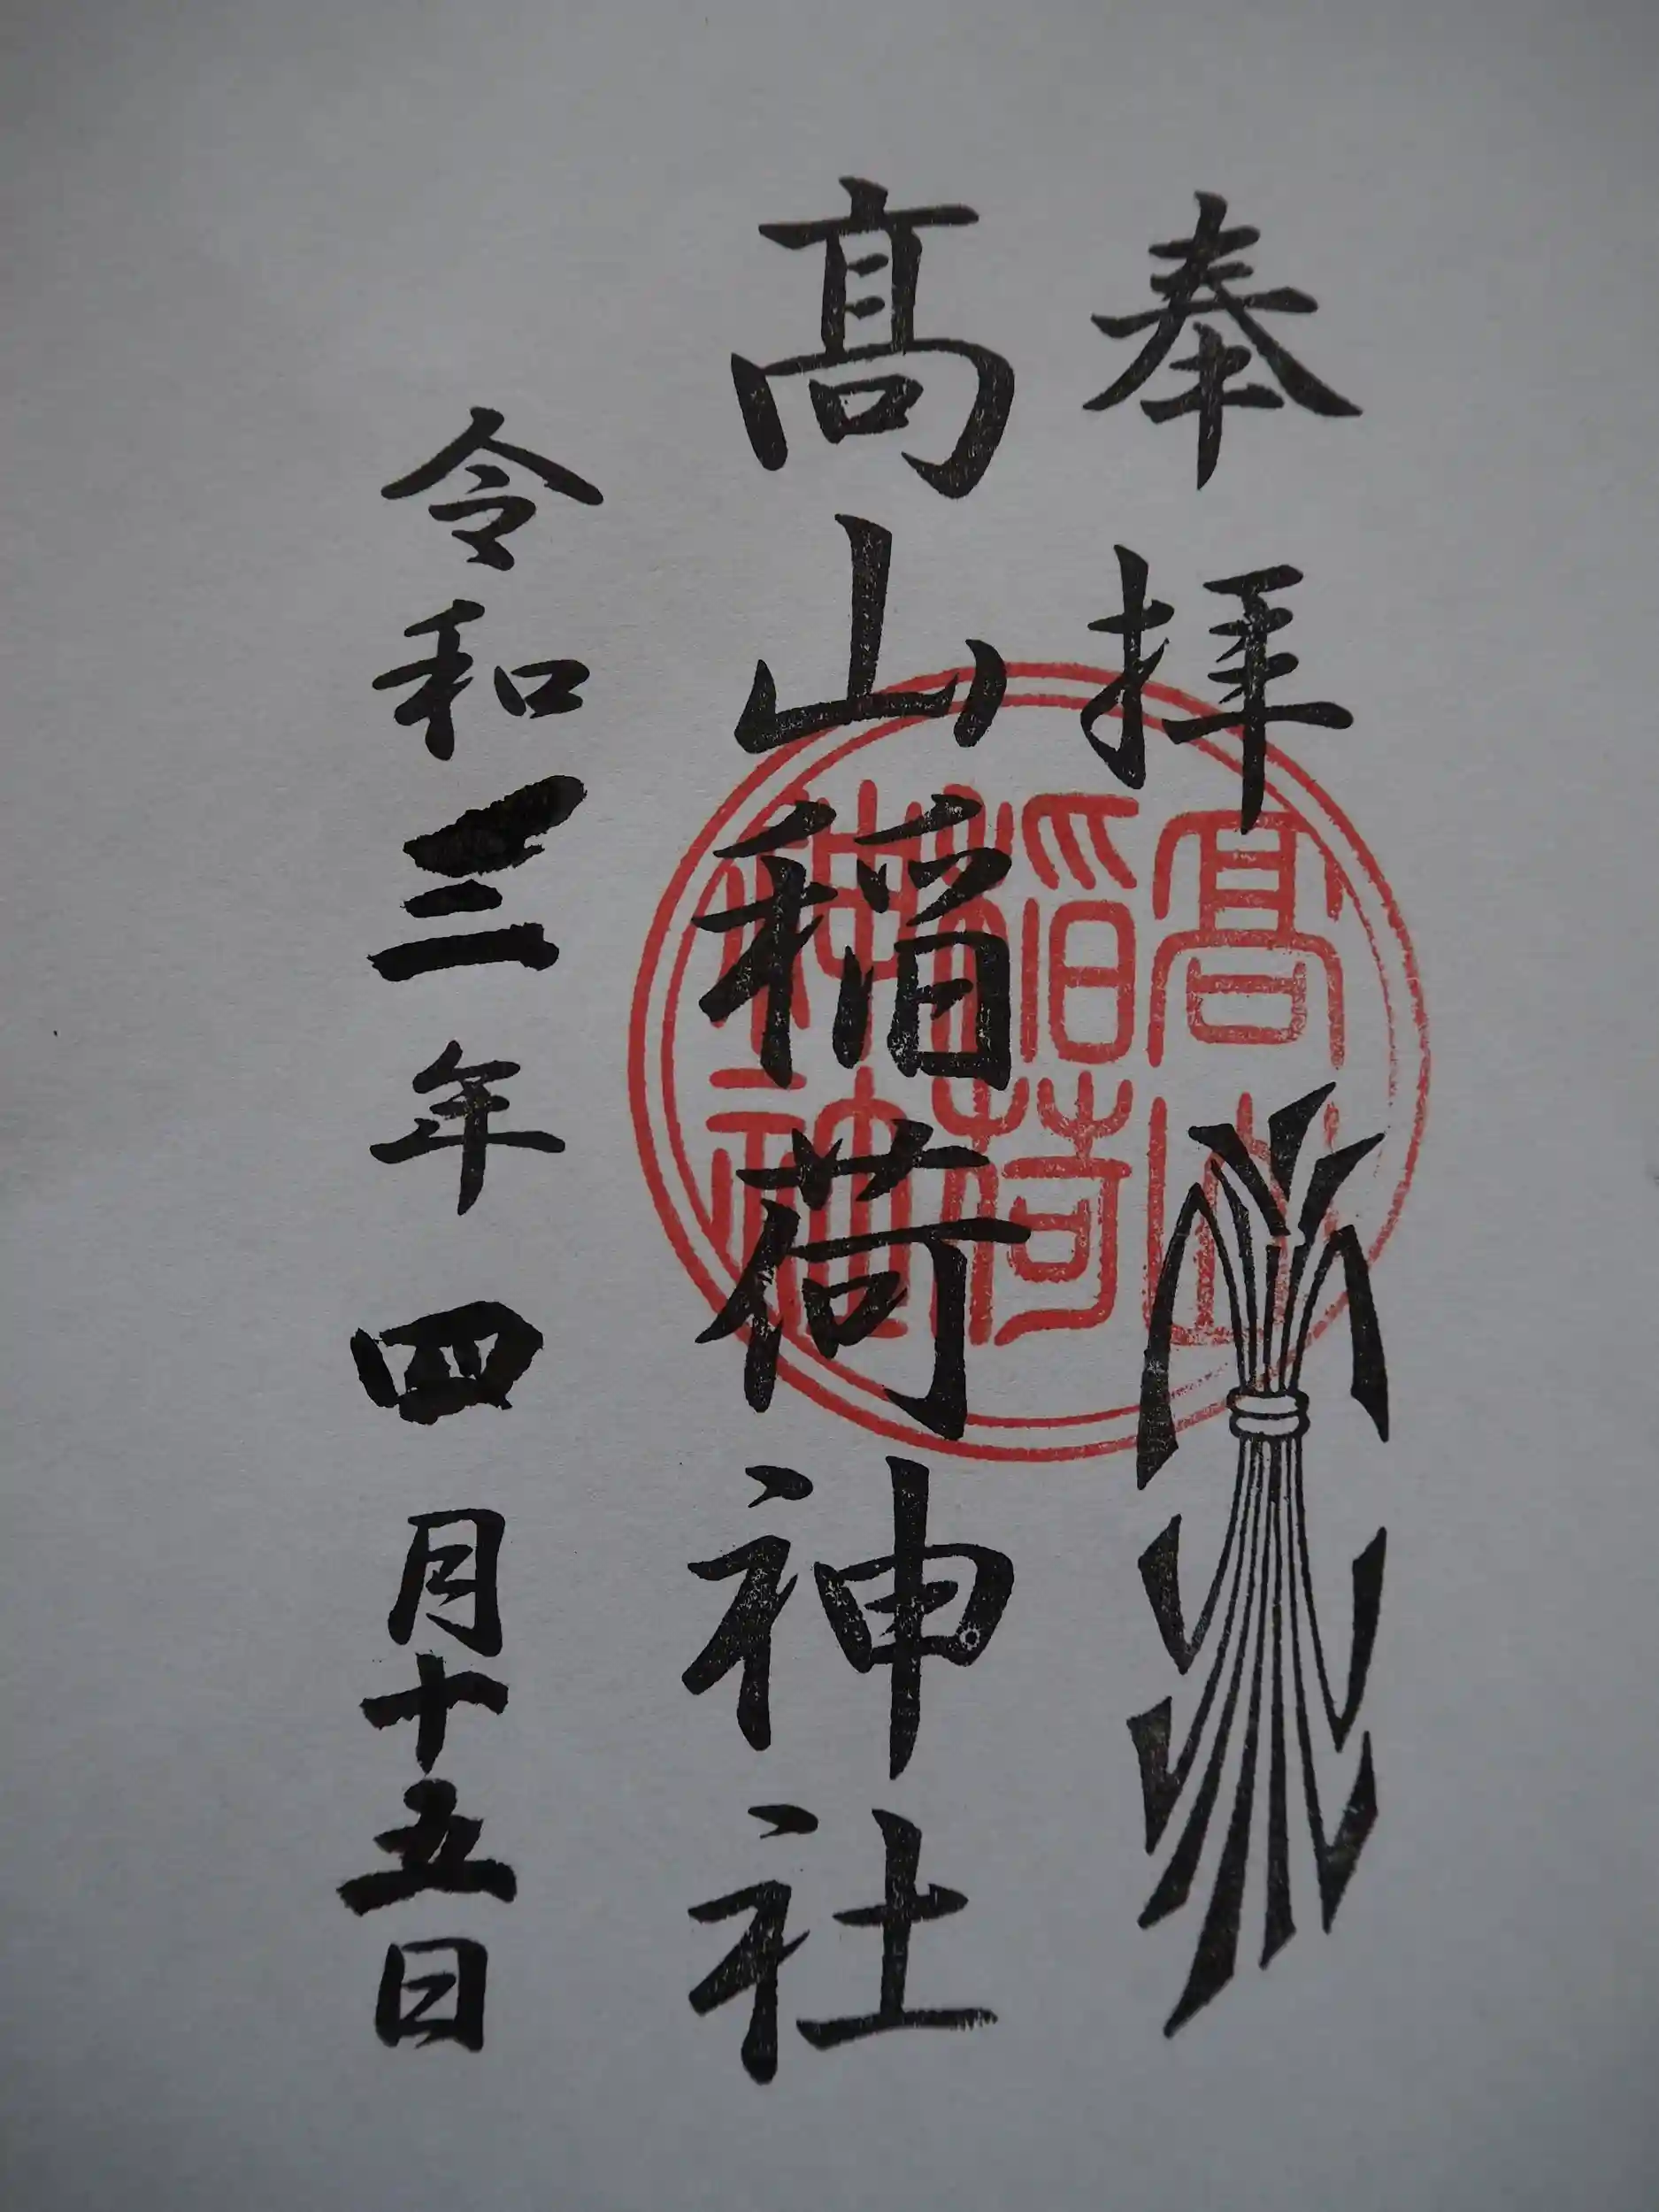 奉拝
髙山稲荷神社
髙山
稲荷
神社
令和三年四月十五日